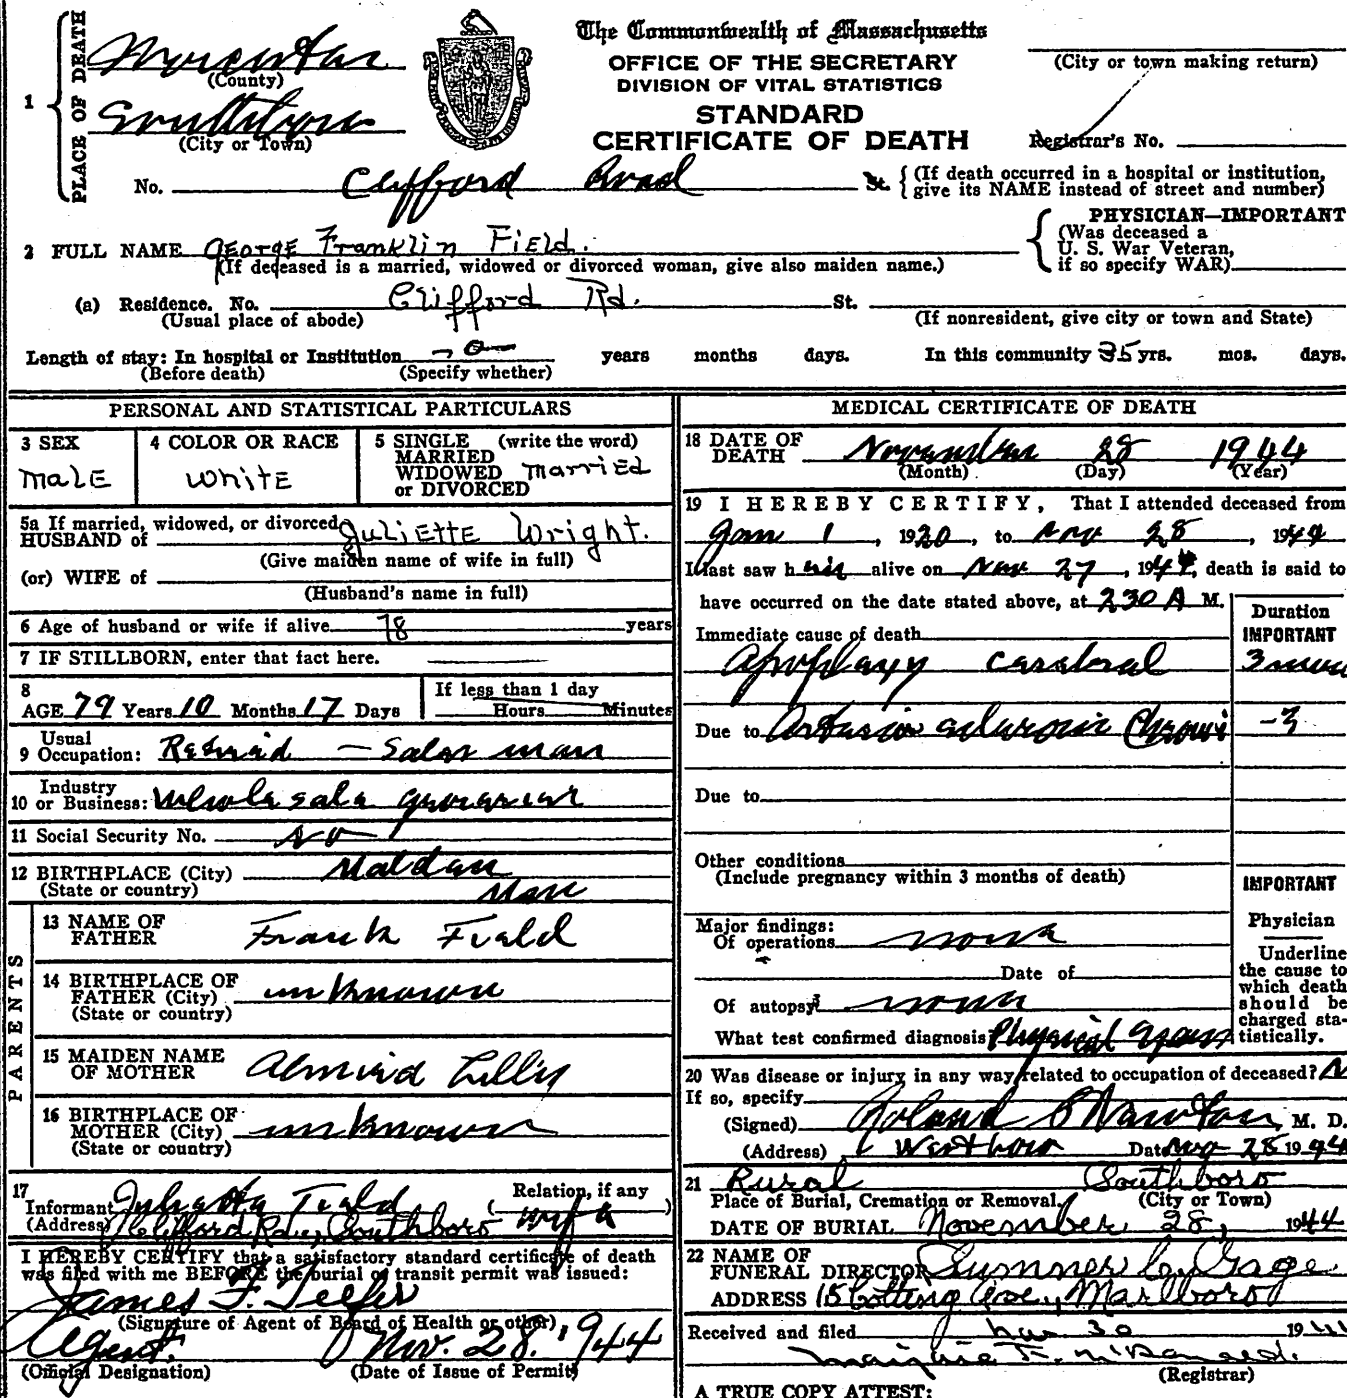 The Commonwealth of Massachusetts
OFFICE OF THE SECRETARY
DIVISION OF VITAL STATISTICS
STANDARD
CERTIFICATE OF DEATH
(City or town making return)
Registrar's No.
1 PLACE OF DEATH
Worcester
(County)
Southboro
(City or Town)
No. Clifford Road St. { (If death occurred in a hospital or institution, give its NAME instead of street and number)
2 FULL NAME George Franklin Field.
(If deceased is a married, widowed or divorced woman, give also maiden name.)
PHYSICIAN—IMPORTANT
(Was deceased a
U. S. War Veteran,
if so specify WAR)
(a) Residence. No. Clifford Rd. St.
(Usual place of abode) (If nonresident, give city or town and State)
Length of stay: In hospital or Institution -0- years months days. In this community 35 yrs. mos. days.
(Before death) (Specify whether)
PERSONAL AND STATISTICAL PARTICULARS
3 SEX
Male
4 COLOR OR RACE
White
5 SINGLE (write the word)
MARRIED
WIDOWED Married
or DIVORCED
5a If married, widowed, or divorced
HUSBAND of Juliette Wright.
(Give maiden name of wife in full)
(or) WIFE of
(Husband's name in full)
6 Age of husband or wife if alive 78 years
7 IF STILLBORN, enter that fact here.
8
AGE 79 Years 10 Months 17 Days
If less than 1 day
Hours Minutes
9 Usual Occupation: Retired — Salesman
10 Industry or Business: Wholesale
11 Social Security No. no
12 BIRTHPLACE (City) Malden
(State or country) Mass
PARENTS
13 NAME OF FATHER Frank Field
14 BIRTHPLACE OF FATHER (City) unknown
(State or country)
15 MAIDEN NAME OF MOTHER Almira Lilly
16 BIRTHPLACE OF MOTHER (City) unknown
(State or country)
17
Informant Juliette Field (Relation, if any wife)
(Address) Clifford Rd., Southboro
I HEREBY CERTIFY that a satisfactory standard certificate of death
was filed with me BEFORE the burial or transit permit was issued:
James F. Telfer
(Signature of Agent of Board of Health or other)
Agent. Nov. 28. 1944
(Official Designation) (Date of Issue of Permit)
MEDICAL CERTIFICATE OF DEATH
18 DATE OF DEATH November 28 1944
(Month) (Day) (Year)
19 I HEREBY CERTIFY, That I attended deceased from
Jan 1, 1920, to Nov 28, 1944
I last saw him alive on Nov 27, 1944, death is said to
have occurred on the date stated above, at 230 A M.
Duration
IMPORTANT
Immediate cause of death
Apoplexy cerebral 3
Due to Arterio sclerosis Chronic -3
Due to
Other conditions
(Include pregnancy within 3 months of death)
IMPORTANT
Major findings:
Of operations none
Date of
Of autopsy none
What test confirmed diagnosis Physical
Physician
Underline
the cause to
which death
should be
charged sta-
tistically.
20 Was disease or injury in any way related to occupation of deceased?
If so, specify
(Signed) Roland S Newton, M. D.
(Address) Westboro Date Nov 28 1944
21 Rural Southboro
Place of Burial, Cremation or Removal. (City or Town)
DATE OF BURIAL November 28, 1944
22 NAME OF FUNERAL DIRECTOR Sumner C. Gage
ADDRESS 15 Cotting Ave., Marlboro
Received and filed Nov 30 1944
(Registrar)
A TRUE COPY ATTEST: